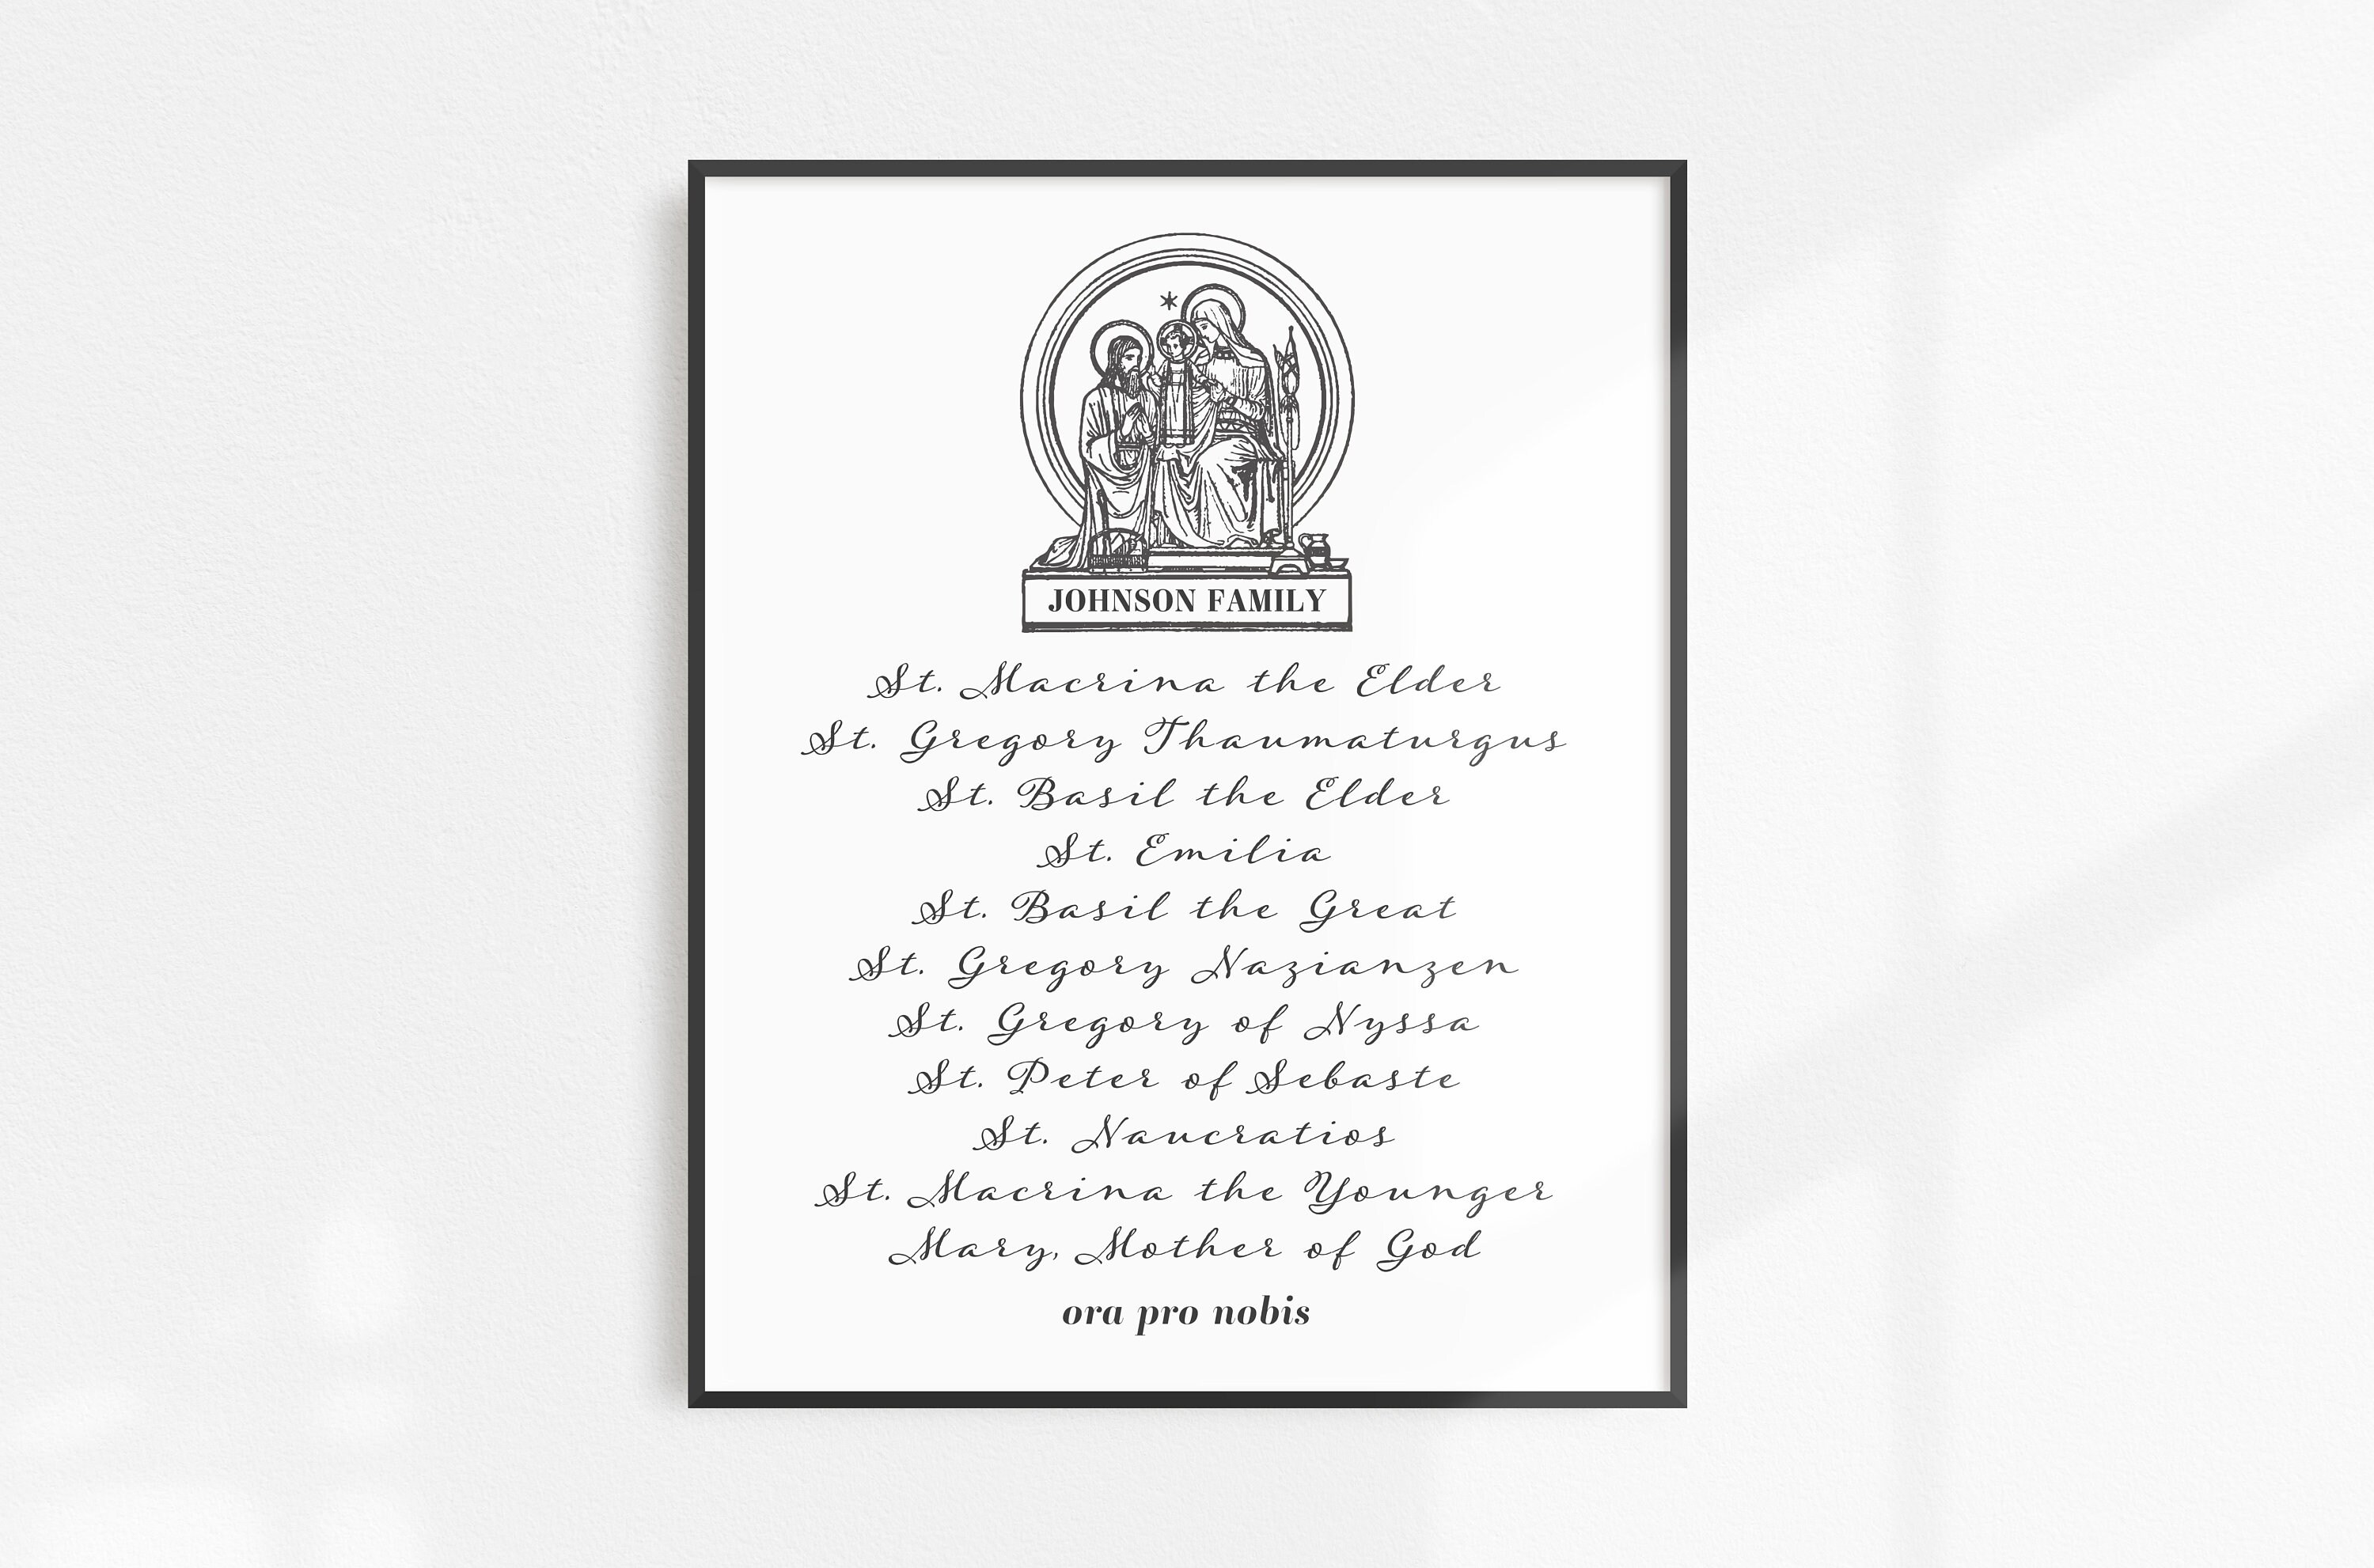 JOHNSON FAMILY
St. Macrina the Elder
St. Gregory Thaumaturgus
St. Basil the Elder
St. Emilia
St. Basil the Great
St. Gregory Nazianzen
St. Gregory of Nyssa
St. Peter of Sebaste
St. Naucratios
St. Macrina the Younger
Mary, Mother of God
ora pro nobis